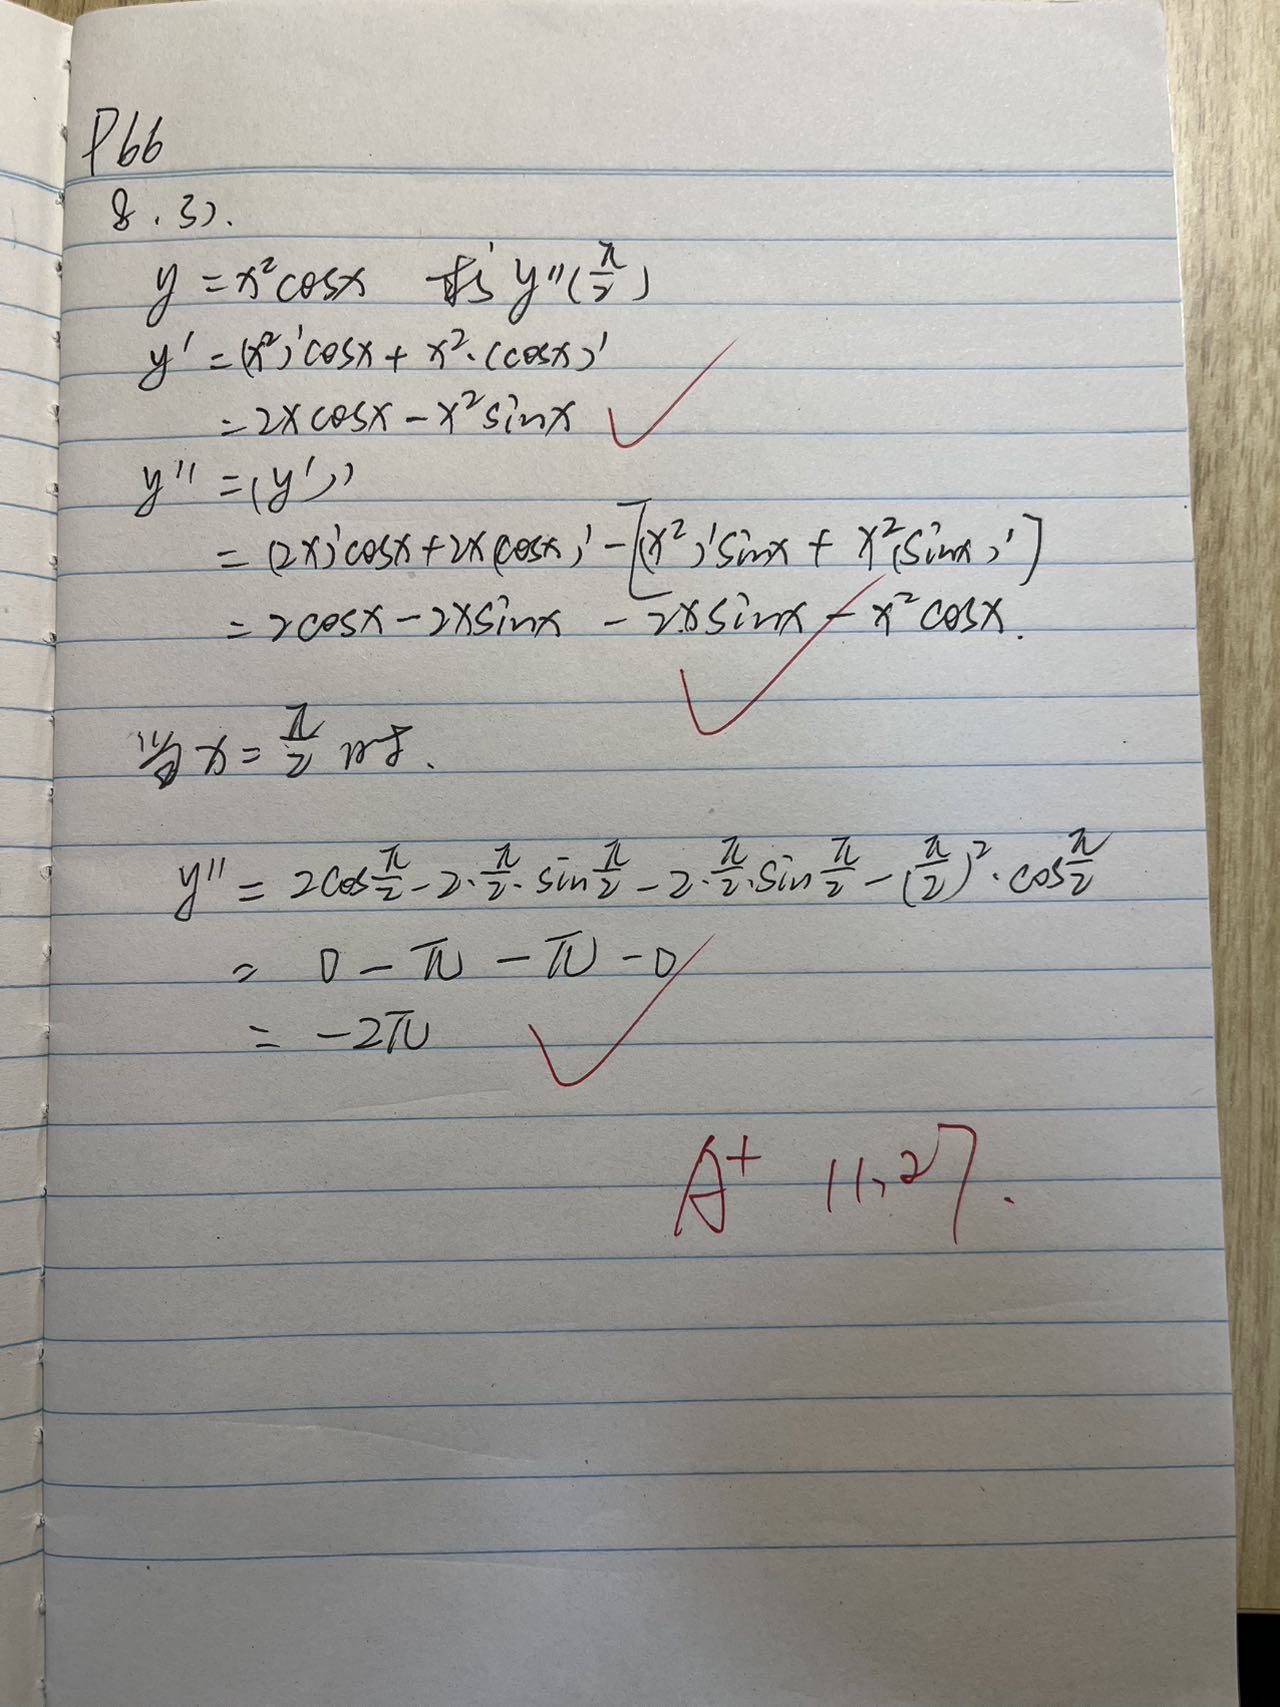 P66
8.3).
y = x²cosx 求 y''(π/2)
y' = (x²)'cosx + x²·(cosx)'
= 2xcosx - x²sinx
y'' = (y')'
= (2x)'cosx + 2x(cosx)' - [(x²)'sinx + x²(sinx)']
= 2cosx - 2xsinx - 2xsinx - x²cosx.
当 x = π/2 时.
y'' = 2cosπ/2 - 2·π/2·sinπ/2 - 2·π/2·sinπ/2 - (π/2)²·cosπ/2
= 0 - π - π - 0
= -2π
A+ 11,27.